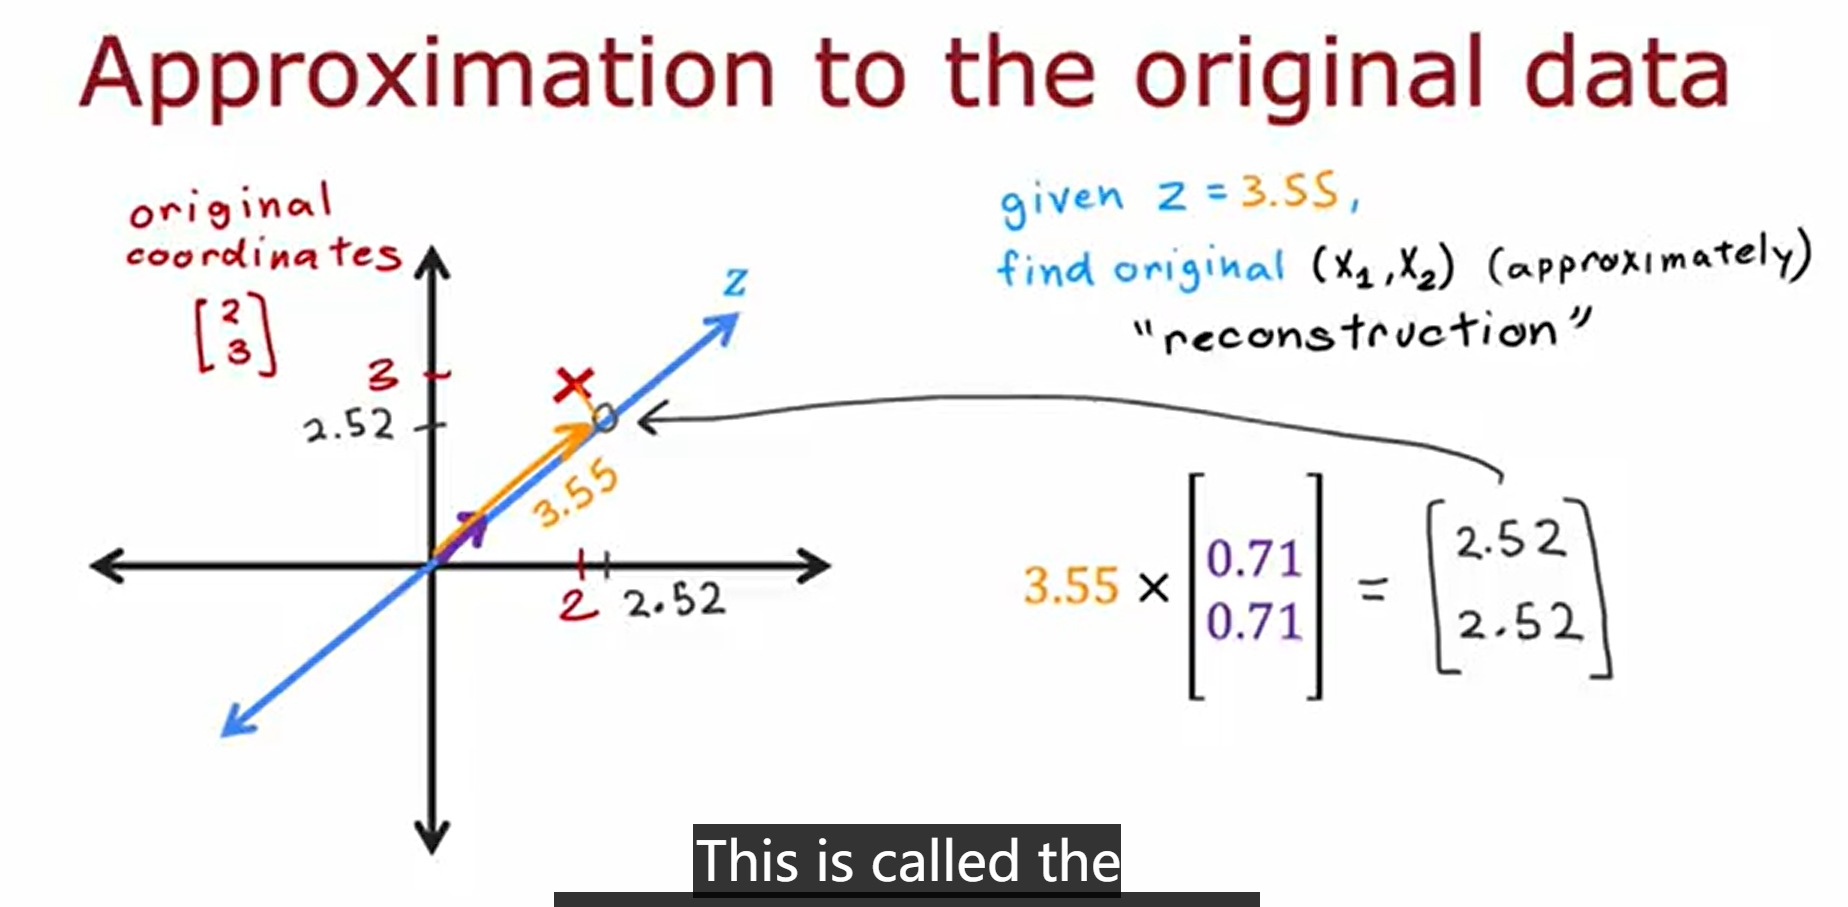 Approximation to the original data
original
coordinates
[2
3]
3
2.52
z
3.55
2 2.52
given z = 3.55,
find original (x₁,x₂) (approximately)
"reconstruction"
3.55 × [0.71
0.71] = [2.52
2.52]
This is called the